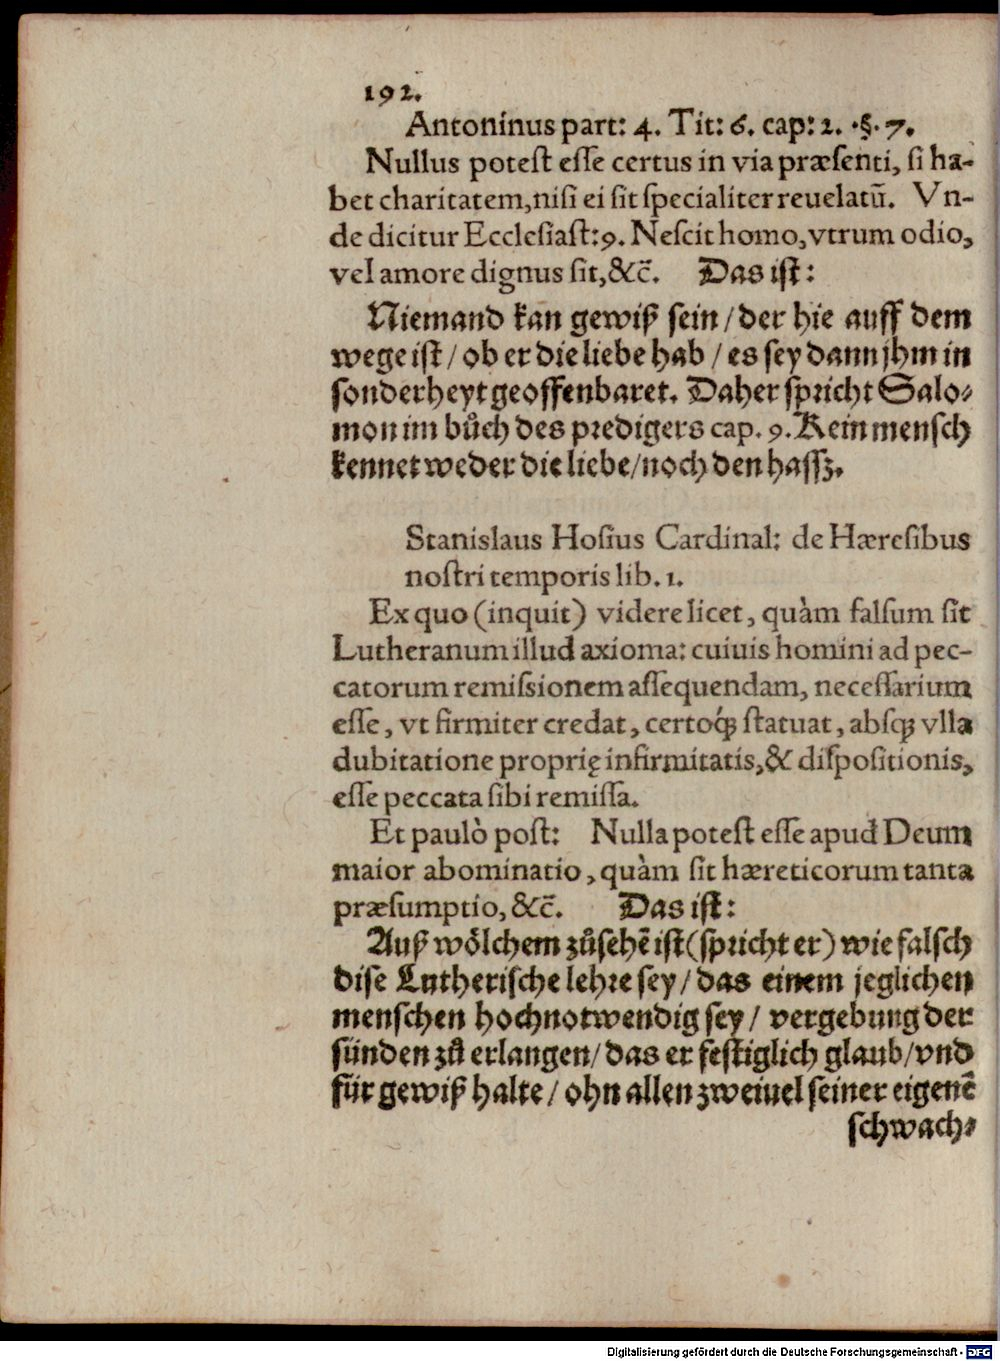 192.
Antoninus part: 4. Tit: 6. cap: 2. ·§· 7.
Nullus potest esse certus in via præsenti, si ha-
bet charitatem, nisi ei sit specialiter reuelatū. Vn-
de dicitur Ecclesiast: 9. Nescit homo, vtrum odio,
vel amore dignus sit, &c̄. Das ist:
Niemand kan gewiß sein / der hie auff dem
wege ist / ob er die liebe hab / es sey dann jhm in
sonderheyt geoffenbaret. Daher spricht Salo-
mon im bůch des predigers cap. 9. Kein mensch
kennet weder die liebe / noch den hassz.
Stanislaus Hosius Cardinal: de Hæresibus
nostri temporis lib. 1.
Ex quo (inquit) videre licet, quàm falsum sit
Lutheranum illud axioma: cuiuis homini ad pec-
catorum remissionem assequendam, necessarium
esse, vt firmiter credat, certoq́; statuat, absq; vlla
dubitatione proprię infirmitatis, & dispositionis,
esse peccata sibi remissa.
Et paulò post: Nulla potest esse apud Deum
maior abominatio, quàm sit hæreticorum tanta
præsumptio, &c̄. Das ist:
Auß wölchem zůsehē ist (spricht er) wie falsch
dise Lutherische lehre sey / das einem jeglichen
menschen hochnotwendig sey / vergebung der
sünden zů erlangen / das er festiglich glaub / vnd
für gewiß halte / ohn allen zweiuel seiner eigenē
schwach-
Digitalisierung gefördert durch die Deutsche Forschungsgemeinschaft - DFG